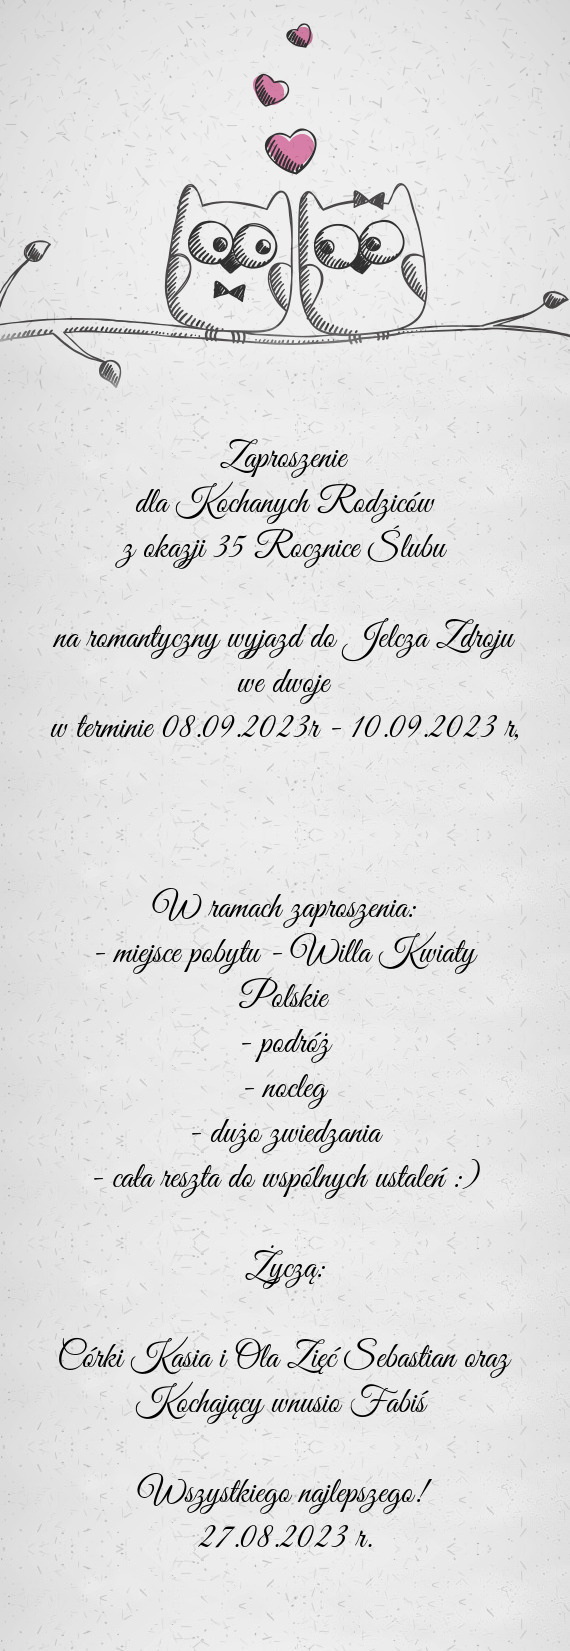 Zaproszenie
dla Kochanych Rodziców
z okazji 35 Rocznice Ślubu
na romantyczny wyjazd do Jelcza Zdroju
we dwoje
w terminie 08.09.2023r - 10.09.2023 r,
W ramach zaproszenia:
- miejsce pobytu - Willa Kwiaty
Polskie
- podróż
- nocleg
- dużo zwiedzania
- cała reszta do wspólnych ustaleń :)
Życzą:
Córki Kasia i Ola Zięć Sebastian oraz
Kochający wnusio Fabiś
Wszystkiego najlepszego!
27.08.2023 r.